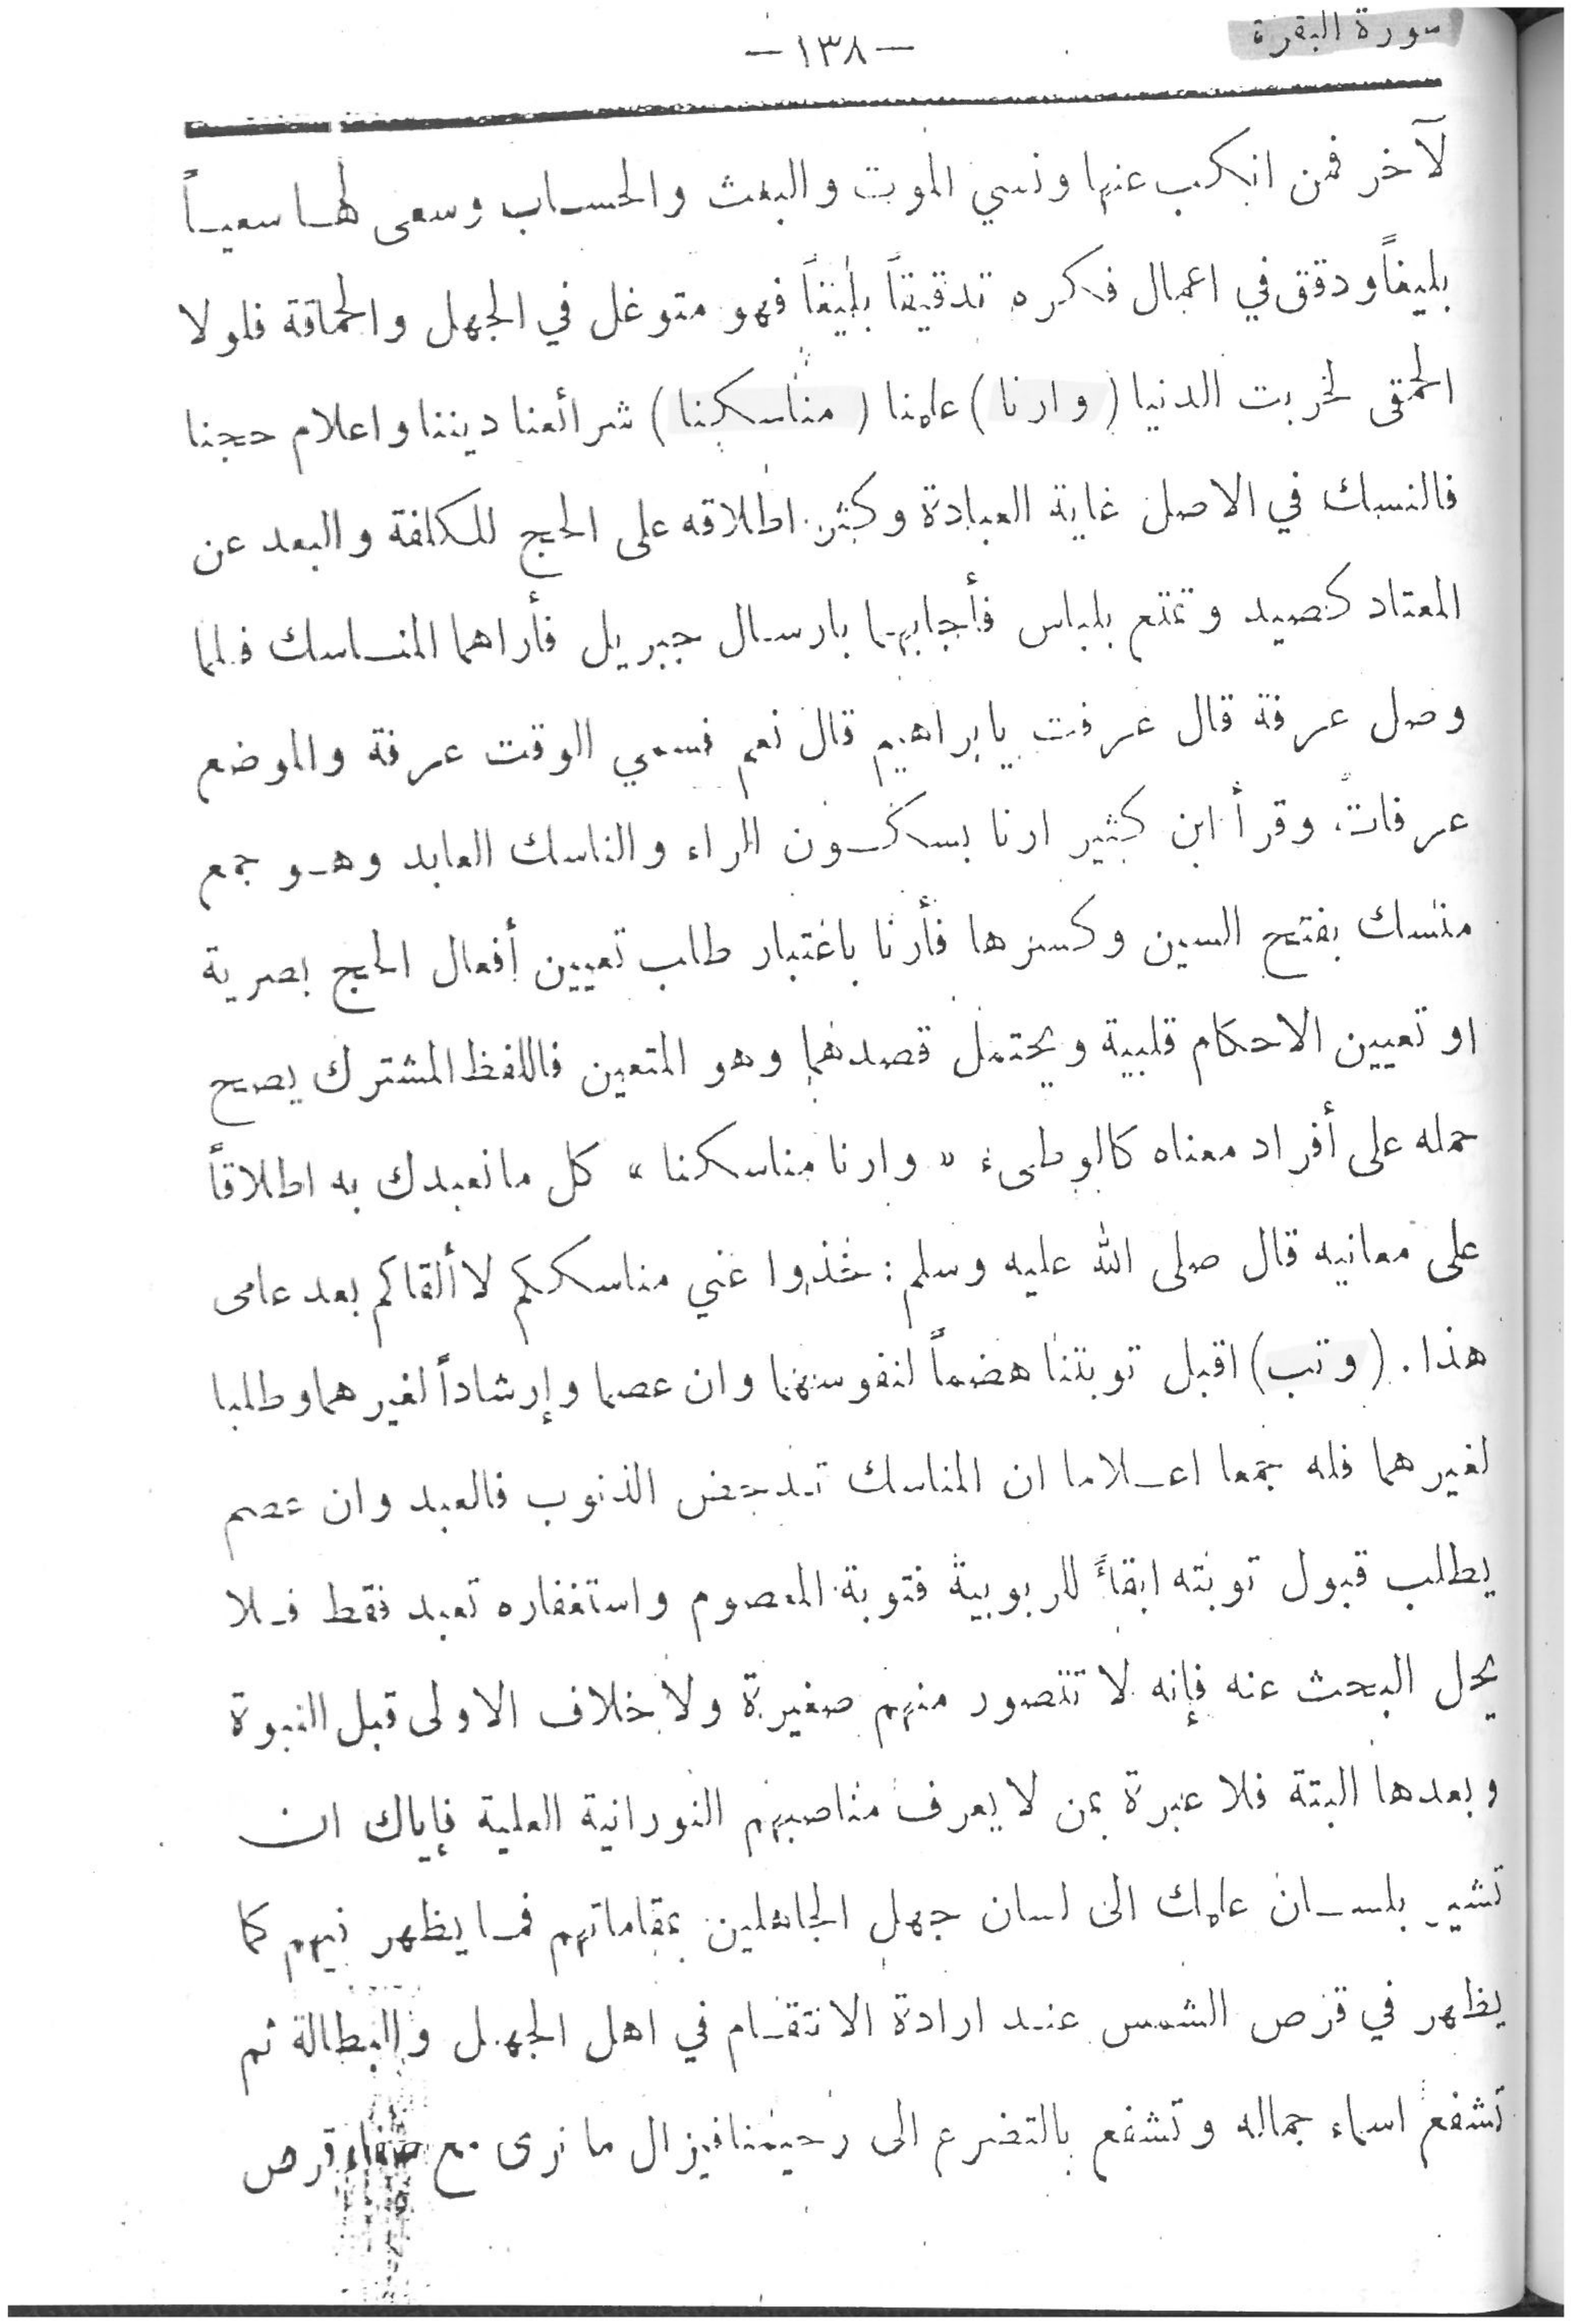 سورة البقرة
— ١٣٨ —
لآخر فمن انكب عنها ونسي الموت والبعث والحساب وسعى لها سعياً
بليغاً ودقق في اعمال فكره تدقيقاً بليغاً فهو متوغل في الجهل والحماقة فلولا
الحمقى لخربت الدنيا (وارنا) علمنا (مناسكنا) شرائعنا ديننا واعلام حجنا
فالنسك في الاصل غاية العبادة وكثر اطلاقه على الحج للكلفة والبعد عن
المعتاد كصيد وتمتع بلباس فأجابهما بارسال جبريل فأراهما المناسك فلما
وصل عرفة قال عرفت يابراهيم قال نعم فسمي الوقت عرفة والموضع
عرفات، وقرأ ابن كثير ارنا بسكون الراء والناسك العابد وهو جمع
منسك بفتح السين وكسرها فأرنا باعتبار طلب تعيين أفعال الحج بصرية
او تعيين الاحكام قلبية ويحتمل قصدهما وهو المتعين فاللفظ المشترك يصح
حمله على أفراد معناه كالوطىء « وارنا مناسكنا » كل مانعبدك به اطلاقاً
على معانيه قال صلى الله عليه وسلم : خذوا عني مناسككم لا ألقاكم بعد عامى
هذا . (وتب) اقبل توبتنا هضماً لنفوسهما وان عصما وإرشاداً لغيرهما وطلبا
لغيرهما فله جمعا اعلاما ان المناسك تدحض الذنوب فالعبد وان عصم
يطلب قبول توبته ابقاءً للربوبية فتوبة المعصوم واستغفاره تعبد فقط فلا
يحل البحث عنه فإنه لا تتصور منهم صغيرة ولا خلاف الاولى قبل النبوة
وبعدها البتة فلا عبرة بمن لا يعرف مناصبهم النورانية العلية فإياك ان
تشير بلسان علمك الى لسان جهل الجاهلين بمقاماتهم فما يظهر فيهم كما
يظهر في قرص الشمس عند ارادة الانتقام في اهل الجهل والبطالة ثم
تشفع اسماء جماله وتشفع بالتضرع الى رحيمنا فيزال ما نرى مع صفاء قرص